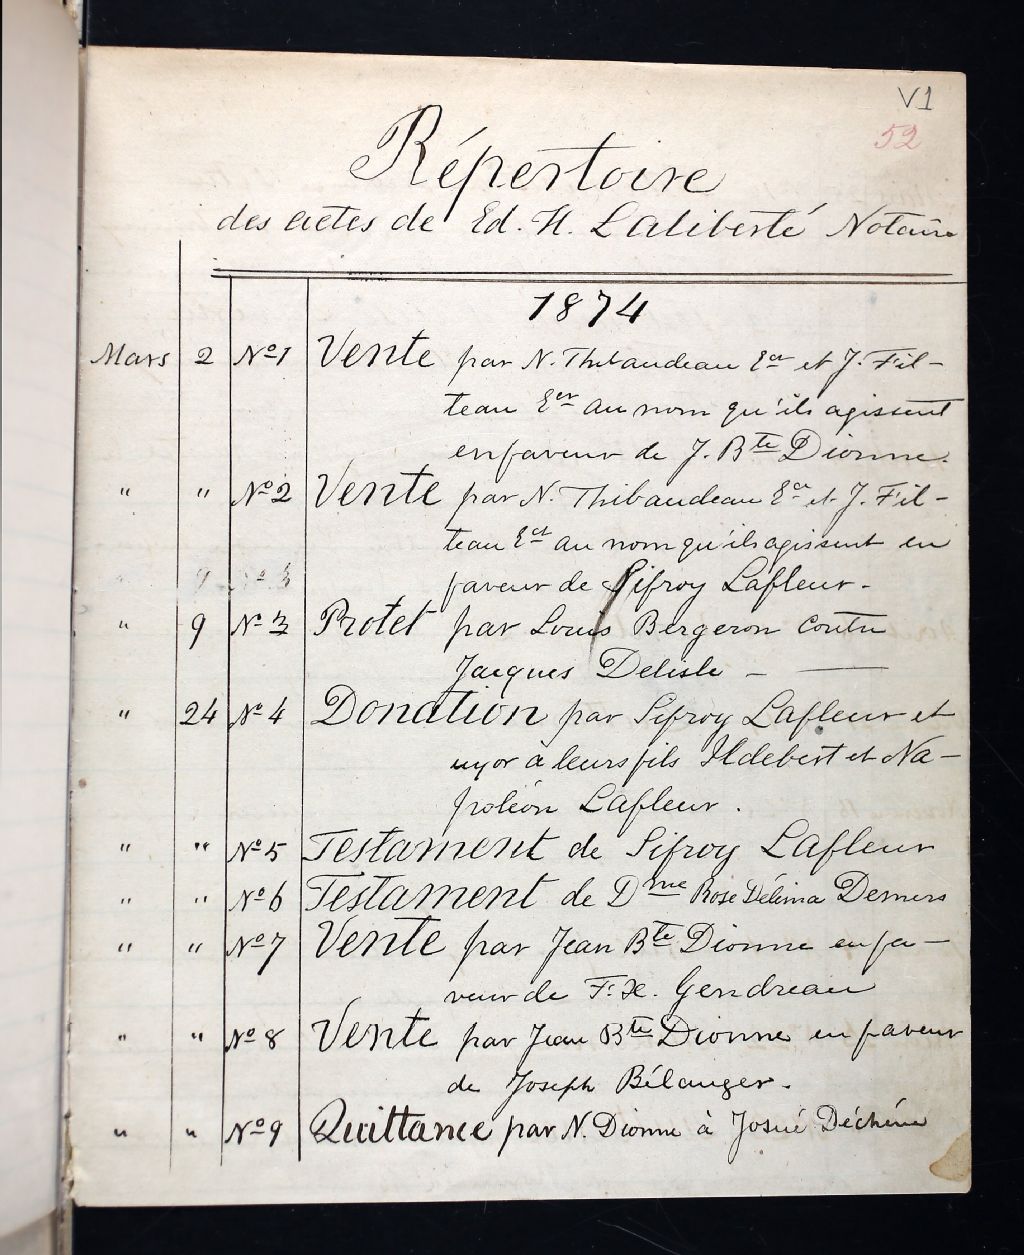 V1
52
Répertoire
des actes de Ed. H. Laliberté Notaire
1874
Mars 2 No 1 Vente par N. Thibaudeau Ecr et J. Fil-
teau Ecr au nom qu'ils agissent
en faveur de J. Bte Dionne.
" " No 2 Vente par N. Thibaudeau Ecr et J. Fil-
teau Ecr au nom qu'ils agissent en
faveur de Sifroy Lafleur.
" 9 No 3 Protêt par Louis Bergeron contre
Jacques Delisle -
" 24 No 4 Donation par Sifroy Lafleur et
uxor à leurs fils Ildebert et Na-
poléon Lafleur.
" " No 5 Testament de Sifroy Lafleur
" " No 6 Testament de Dme Rose Délima Demers
" " No 7 Vente par Jean Bte Dionne en fa-
veur de F. X. Gendreau
" " No 8 Vente par Jean Bte Dionne en faveur
de Joseph Bélanger.
" " No 9 Quittance par N. Dionne à Josué Déchêne